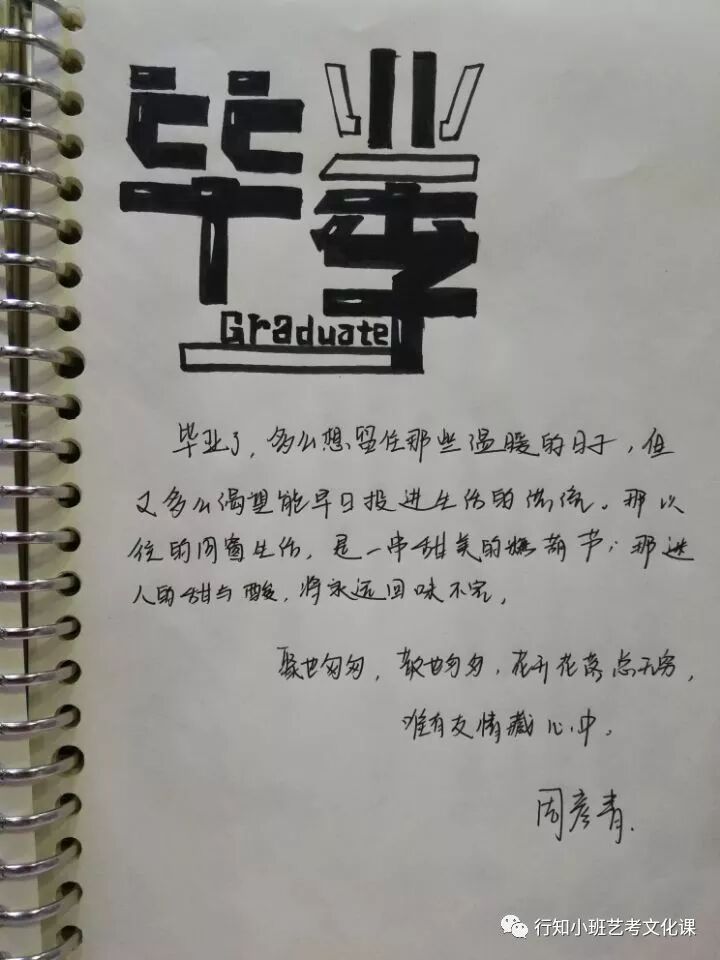 毕业季
Graduate
毕业了，多么想留住那些温暖的日子，但
又多么渴望能早日投进生活的洪流。那以
往的同窗生活，是一串甜美的糖葫芦；那迷
人的甜与酸，将永远回味不完，
聚也匆匆，散也匆匆，花开花落总无穷，
唯有友情藏心中。
周彦青.
行知小班艺考文化课